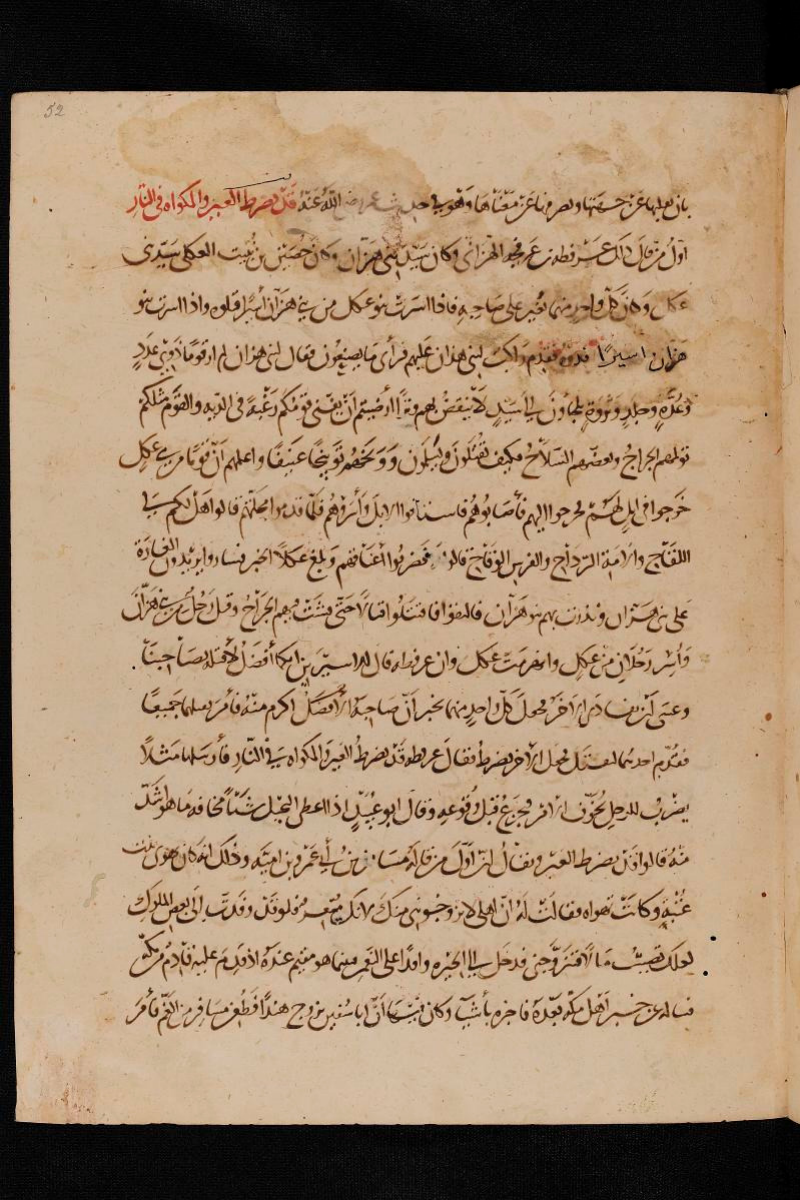 52
بان يعدلها عن جهتها ويصرفها عن معناها وهو في حديث عمر رضي الله عنه قد يضرط العير والمكواه في النار
اول من قال ذلك عرفطه بن عرفجه الهزاني وكان سيد بني هزان وكان حصين بن نبيت العكلي سيد بني
عكل وكان كل واحد منهما يغير على صاحبه فاذا اسرت بنو عكل من بني هزان اسيرا قتلوه واذا اسرت بنو
هزان اسيرا فدوه فقدم راكب لبني هزان عليهم فرأى ما يصنعون فقال لبني هزان لم ار قوما ذوي عدد
وعدة وجلد وثروة يلجأون الى سيد لا ينقض لهم وترا أرضيتم أن يفنى قومكم رغبة في الديه والقوم مثلكم
تولمهم الجراح ويعضهم السلاح فكيف تقتلون ويسلمون ووبخهم توبيخا عنيفا واعلمهم أن قوما من بني عكل
خرجوا في طلب ابل لهم فخرجوا اليهم فأصابوهم فاستاقوا الابل وأسروهم فلما قدموا محلتهم قالوا هل لكم في
اللقاح والامة الرداح والفرس الوقاح قالوا لا فضربوا اعناقهم وبلغ عكلا الخبر فساروا يريدون الغارة
على بني هزان ونذرت بهم بنو هزان فالتقوا فاقتتلوا قتالا حتى فشت فيهم الجراح وقتل رجل من بني هزان
وأسر رجلان من عكل وانهزمت عكل وان عرفطه قال للاسيرين ايكما أفضل لاقتله بصاحبنا
وعسى أن يفادى الاخر فجعل كل واحد منهما يخبر أن صاحبه افضل اكرم منه فأمر بقتلهما جميعا
فقدم احدهما ليقتل فجعل الاخر يضرط فقال عرفطه قد يضرط العير والمكواه في النار فأرسلها مثلا
يضرب للرجل يخوف الامر فيجزع قبل وقوعه وقال ابو عبيد اذا اعطى البخيل شيئا مخافه ما هو اشد
منه قالوا قد يضرط العير ويقال ان اول من قاله مسافر بن ابي عمرو بن اميه وذلك انه كان يهوى بنت
عتبه وكانت تهواه فقالت له ان اهلي لا يزوجوني منك لانك معسر فلو قد وفدت الى بعض الملوك
لعلك تصيب مالا فتزوجني فدخل الى الحيره وافدا على النعمن فبينما هو مقيم عنده اذ قدم عليه قادم من مكه
فساله عن خبر أهل مكه بعده فاخبره بأشيا وكان فيها أن ابا سفين تزوج هندا فطعن مسافر من الغم فأمر